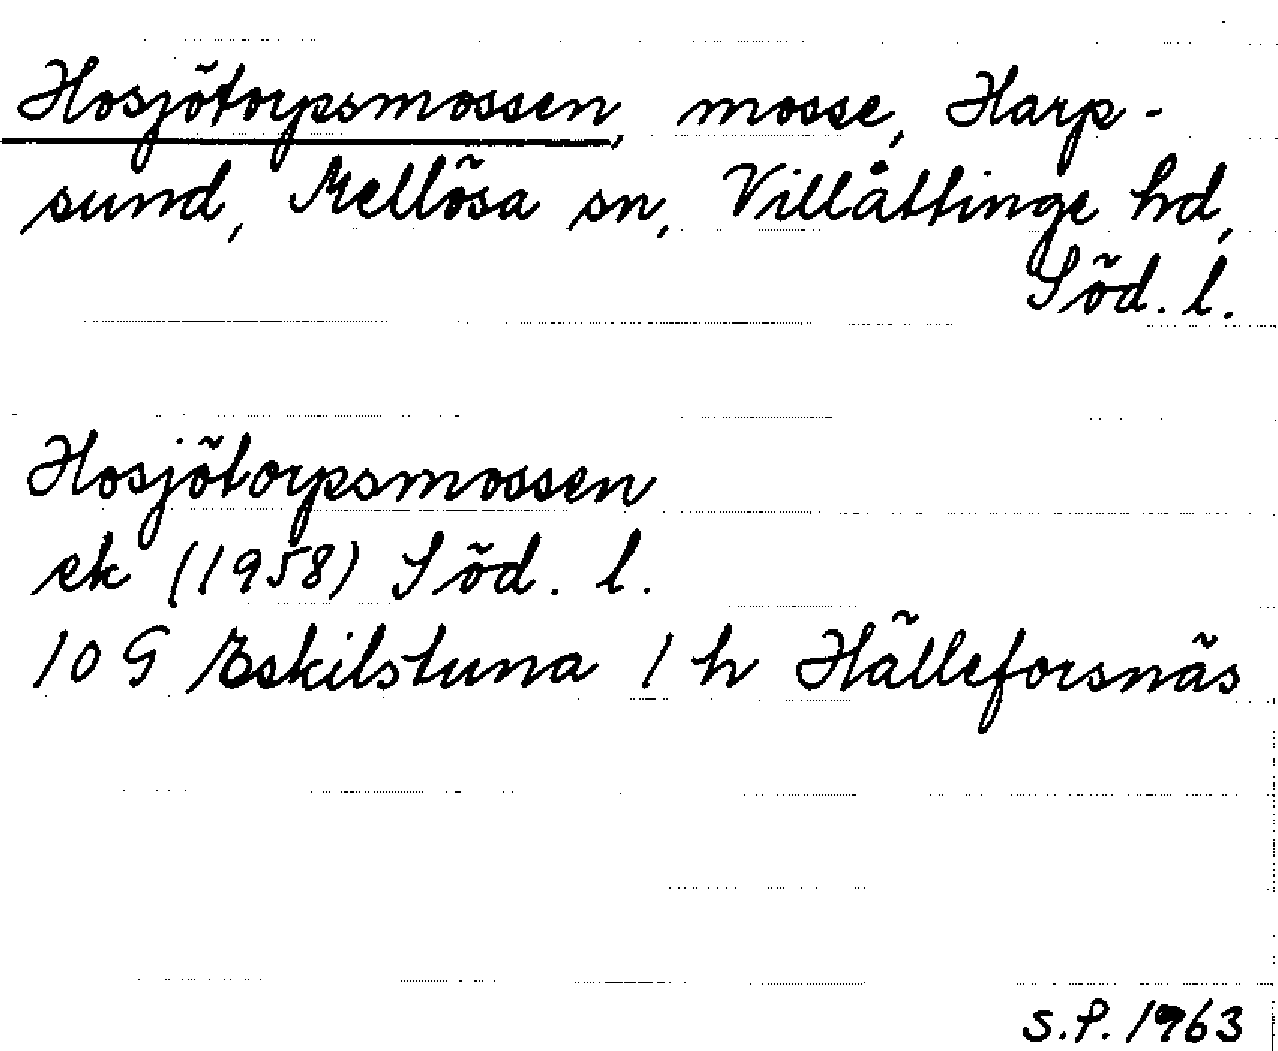 Hosjötorpsmossen, mosse, Harp-
sund, Mellösa sn, Villåttinge hd,
Söd. l.
Hosjötorpsmossen
ek (1958) Söd. l.
10 G Eskilstuna 1 h Hälleforsnäs
S.P. 1963